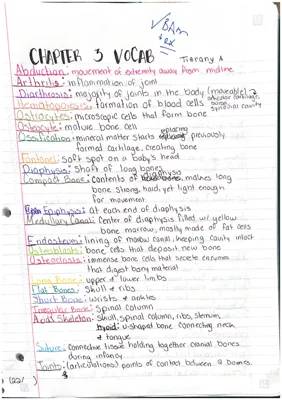 CHAPTER 3 VOCAB
Abduction: movement of extremity away from midline
Arthritis: inflammation of joint
Diarthrosis: majority of joints in the body (moveable)
Hematopoiesis: formation of blood cells
synovial cavity
Osteocytes: microscopic cells that form bone
Osteocyte: mature bone cell
replacing
Ossification: mineral matter starts previously
formed cartilage, creating bone
Fontanel: soft spot on a baby's head
Diaphysis: Shaft of long bones
diaphysis
Compact Bone: contents of makes long
bone strong, hard, yet light enough
for movement.
Epiphysis: at each end of diaphysis
Medullary Canal: center of diaphysis filled w/ yellow
bone marrow, mostly made of fat cells
Endosteum: lining of canal; keeping cavity intact
Osteoblasts: bone cells that deposit new bone
Osteoclasts: immense bone cells that secrete enzymes
that digest bony material
Long Bone: upper + limbs
Flat Bones: skull + ribs
Short Bone: wrists + ankles
Irregular Bone: Spinal column
Axial Skeleton: Skull, spinal column, ribs, sternum,
hyoid: u-shaped bone connecting neck
+ tongue
Suture: connective tissue holding together cranial bones
during infancy
Joints: (articulations) points of contact between 2 bones.